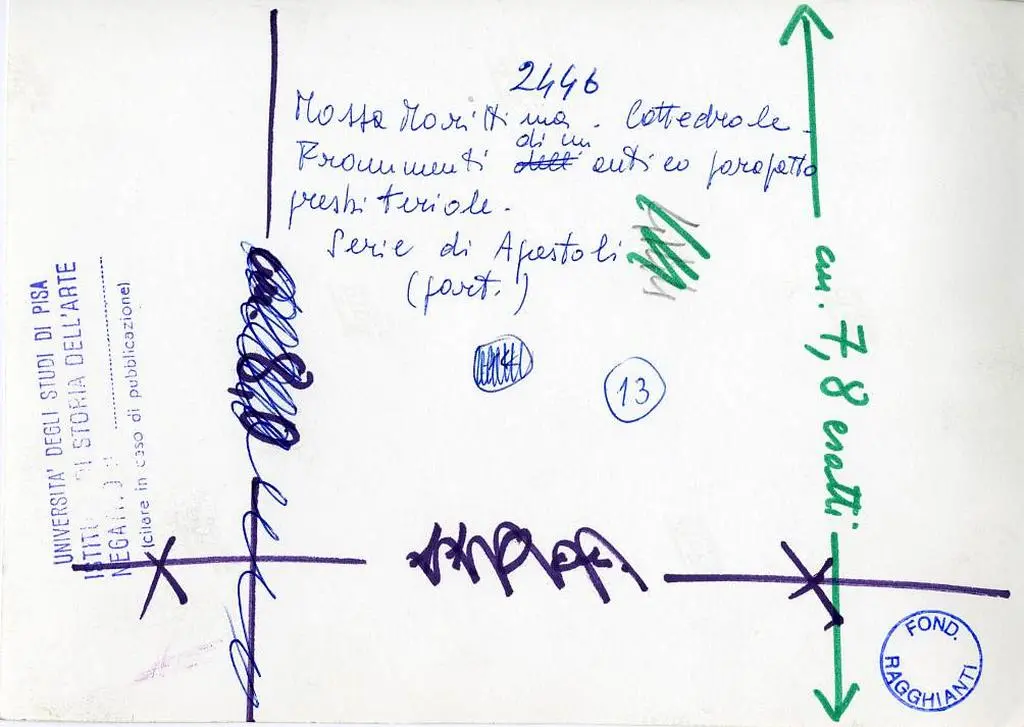 2446
Massa Marittima. Cattedrale.
Frammenti di un antico parapetto
presbiteriale.
Serie di Apostoli
(part.)
13
cm. 7,8 esatti
UNIVERSITA' DEGLI STUDI DI PISA
DI STORIA DELL'ARTE
(citare in caso di pubblicazione)
FOND.
RAGGHIANTI